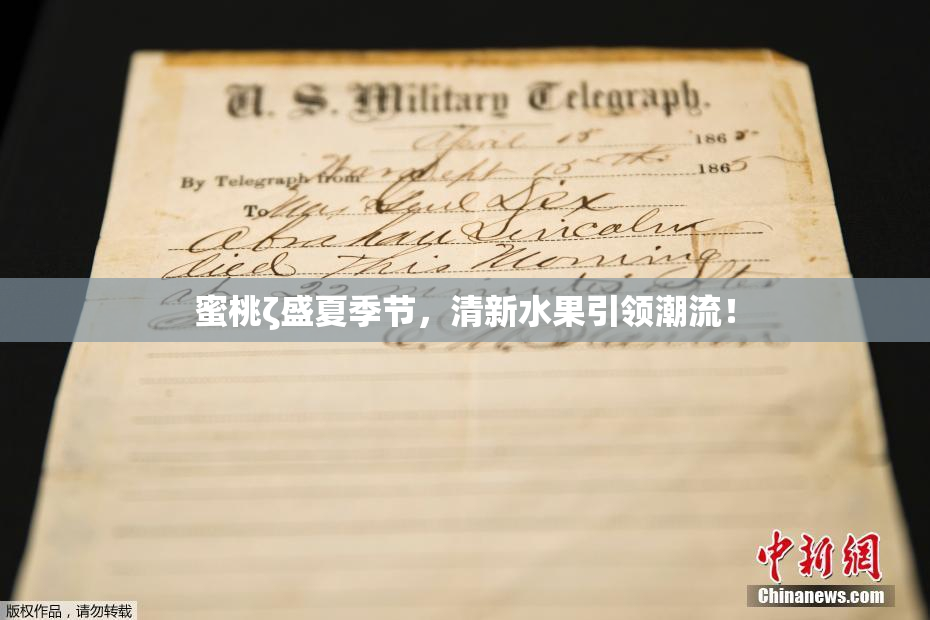 U. S. Military Telegraph.
April 15 1865
By Telegraph from War Dept 15th 1865
To Maj Genl Dix
Abraham Lincoln
died This Morning
at 22 minutes after
蜜桃ζ盛夏季节，清新水果引领潮流！
E. M. Stanton
中新网
Chinanews.com
版权作品，请勿转载